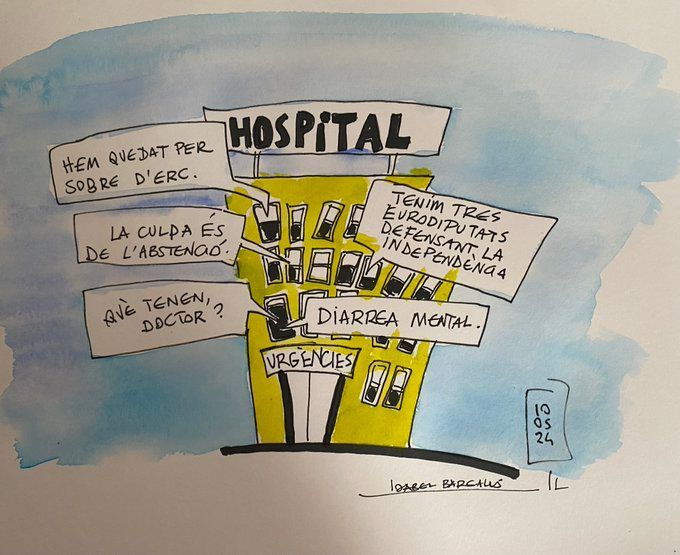 HOSPITAL
HEM QUEDAT PER
SOBRE D'ERC.
LA CULPA ÉS
DE L'ABSTENCIÓ.
TENIM TRES
EURODIPUTATS
DEFENSANT LA
INDEPENDÈNCIA
QUÈ TENEN,
DOCTOR?
DIARREA MENTAL.
URGÈNCIES
10
05
24
ISABEL BARCALLÓ
IL